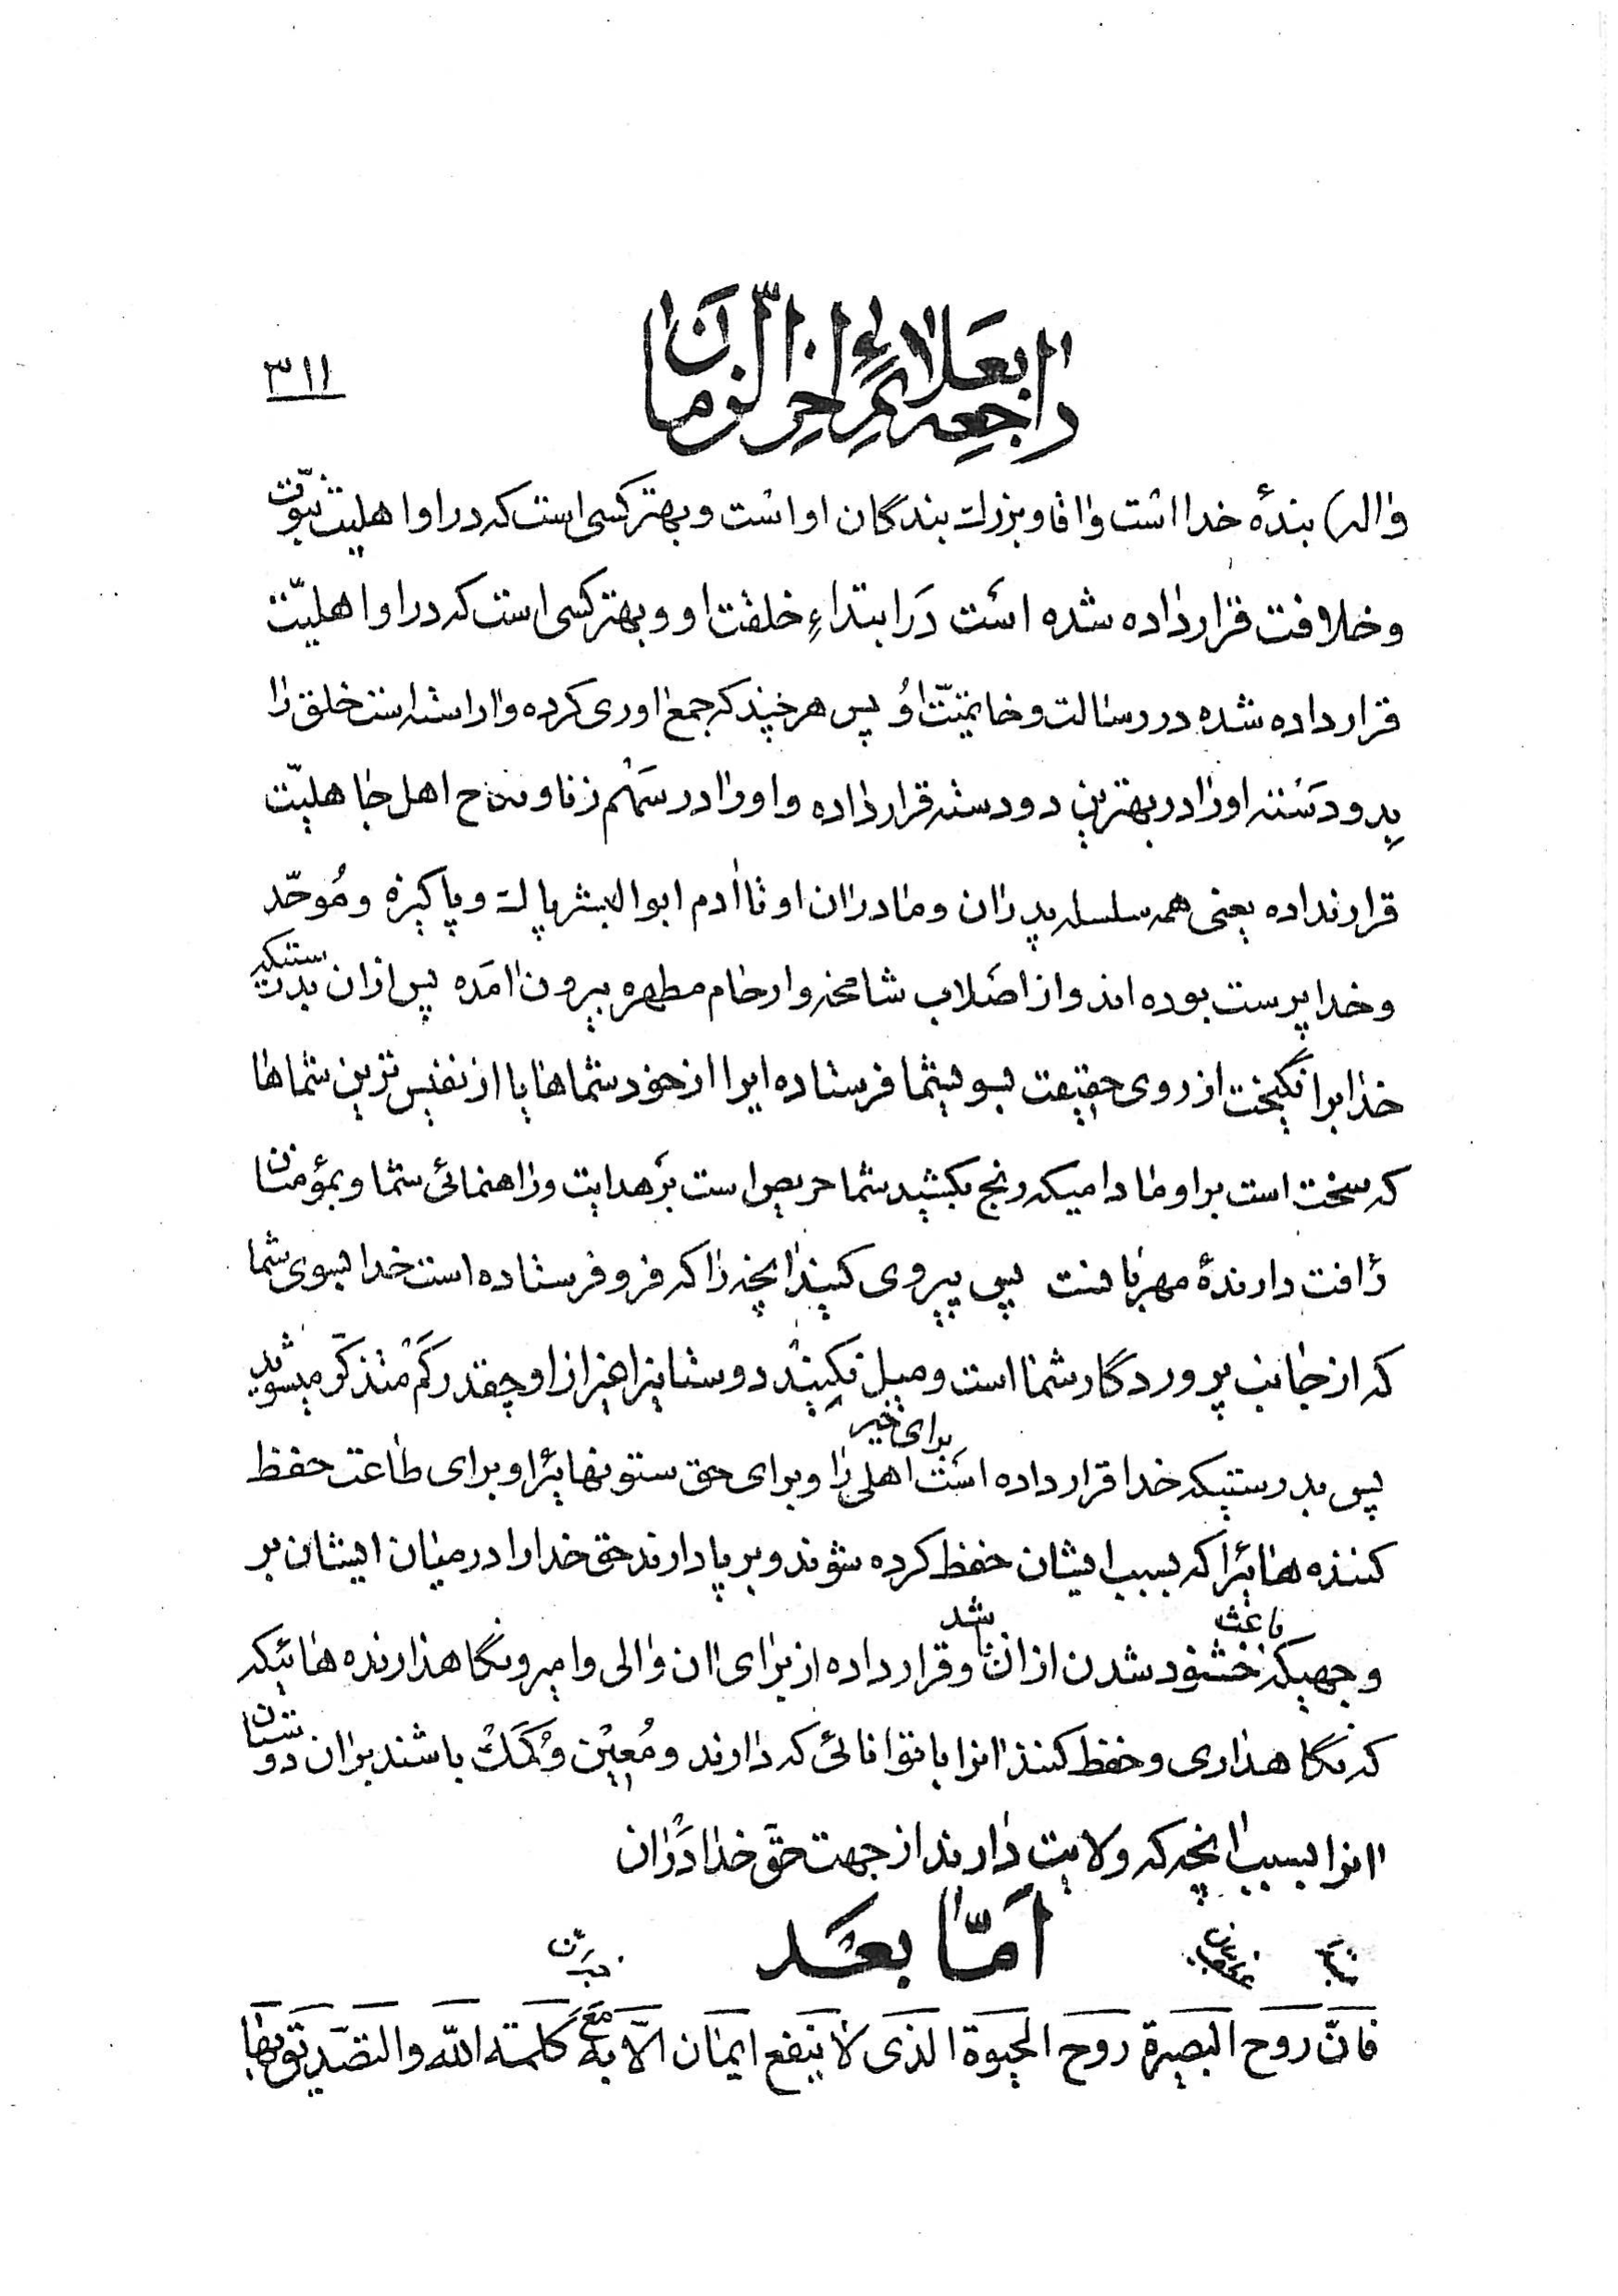 ۳۱۱
راجعه بعلائم اخر الزمان
واله) بندهٔ خدا است واقا وبزرك بندگان او است و بهتر كسى است كه در او اهليت نبوّت
و خلافت قرار داده شده است در ابتداءِ خلقت او و بهتر كسى است كه در او اهليّت
قرار داده شده در رسالت و خاتميّت اوُ پس هر چند كه جمع اورى كرده و اراسته است خلق را
بدو دَسْته او را در بهترين دو دسته قرار داده و او را در سَهْم زنا و نكاح اهل جاهليّت
قرار نداده يعنى همه سلسله پدران و مادران او تا ادم ابو البشر پاك و پاكيزه و مُوحّد
و خدا پرست بوده اند و از اصَلاب شامخه و ارحام مطهره بيرون امَده پس از ان بدرستيكه
خدا برانگيخت از روى حقيقت بسويشما فرستاده ايرا از خود شماها يا از نفيس ترين شماها
كه سخت است بر او مادا ميكه رنج بكشيد شما حريص است برَ هدايت و راهنمائى شما و بمؤمنان
رَافت دارندهٔ مهربانست پس پيروى كنيد انچه را كه فرو فرستاده است خدا بسوى شما
كه از جانب پروردگار شما است و ميل نكِنيْد دوستانيرا غير از او چقدر كَمْ متذكّر ميشويد
پس بدرستيكه خدا قرار داده اسَت براى خير اهلى را و براى حق ستونهائيرا و براى طاعت حفظ
كننده هائيرا كه بسبب ايشان حفظ كرده شوند و بر پا دارند حق خدا را در ميان ايشان بر
وجهيكه باعث خشنود شدن از انان باشد و قرار داده از براى ان والى و امير و نگاهدارنده هائيكه
كه نگاهدارى و حفظ كنند انرا با توانائى كه دارند و مُعِيْن وْ كَمَكْ باشند بران دوستان
انرا بسبب انچه كه ولايت دارند از جهت حقَ خدا دَرْان
امّا بعَد
فانّ روح البصيرة روح الحيوة الذى لا ينفع ايمان الّا به مَعَ كلمة الله والتصَديق بها